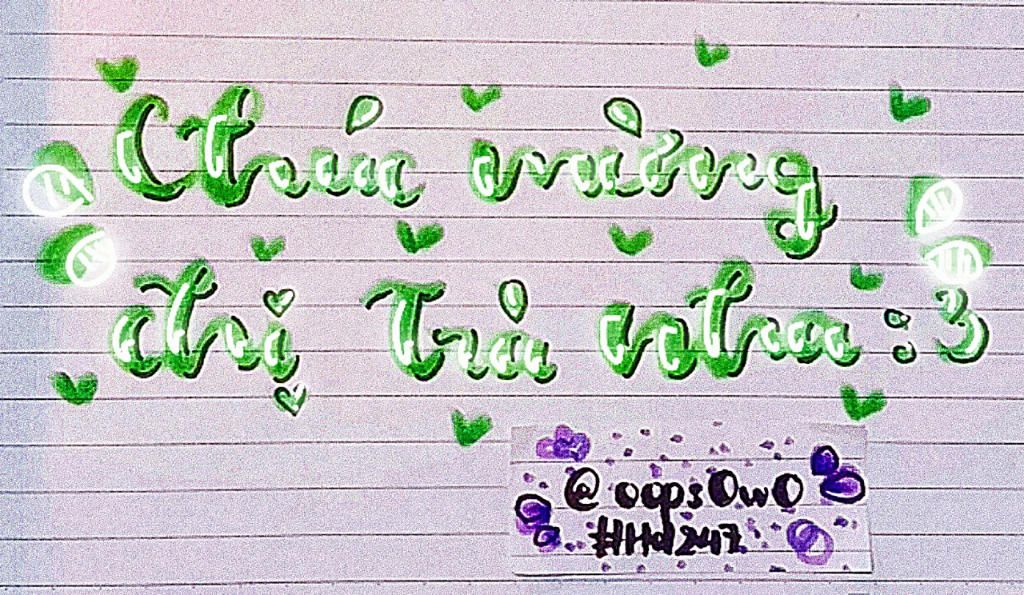 Chúc mừng
chị Trà nha :3
@oopsOwO
#Hd247